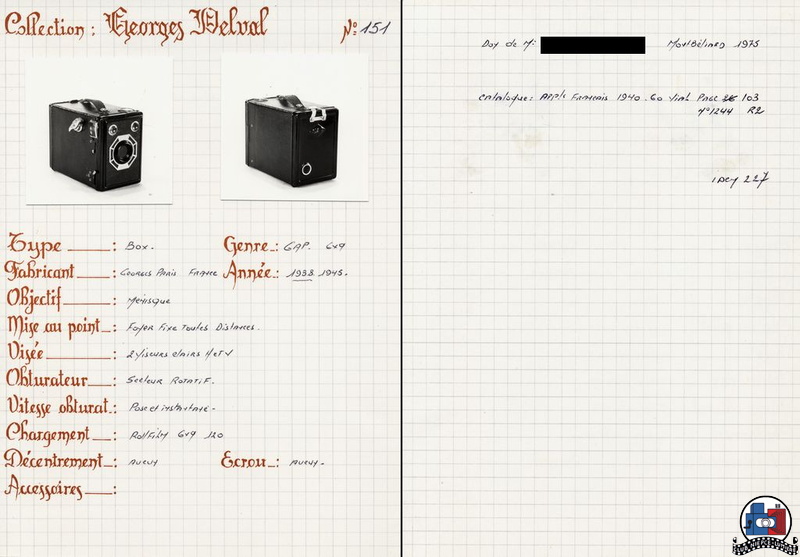 Collection : Georges Delval N°: 151
Type : Box.
Genre : GAP. 6x9
Fabricant : Georges Paris France
Année : 1938 1945.
Objectif : Ménisque
Mise au point : Foyer Fixe Toutes Distances.
Visée : 2 Viseurs clairs H et V
Obturateur : Secteur Rotatif.
Vitesse obturat. : Pose et instantané -
Chargement : Rollfilm 6x9 120
Décentrement : Aucun
Ecrou : Aucun -
Accessoires :
Don de Mr Montbéliard 1975
Catalogue : App. Français 1940 . 60 Vial Page 103
N° 1244 R2
227